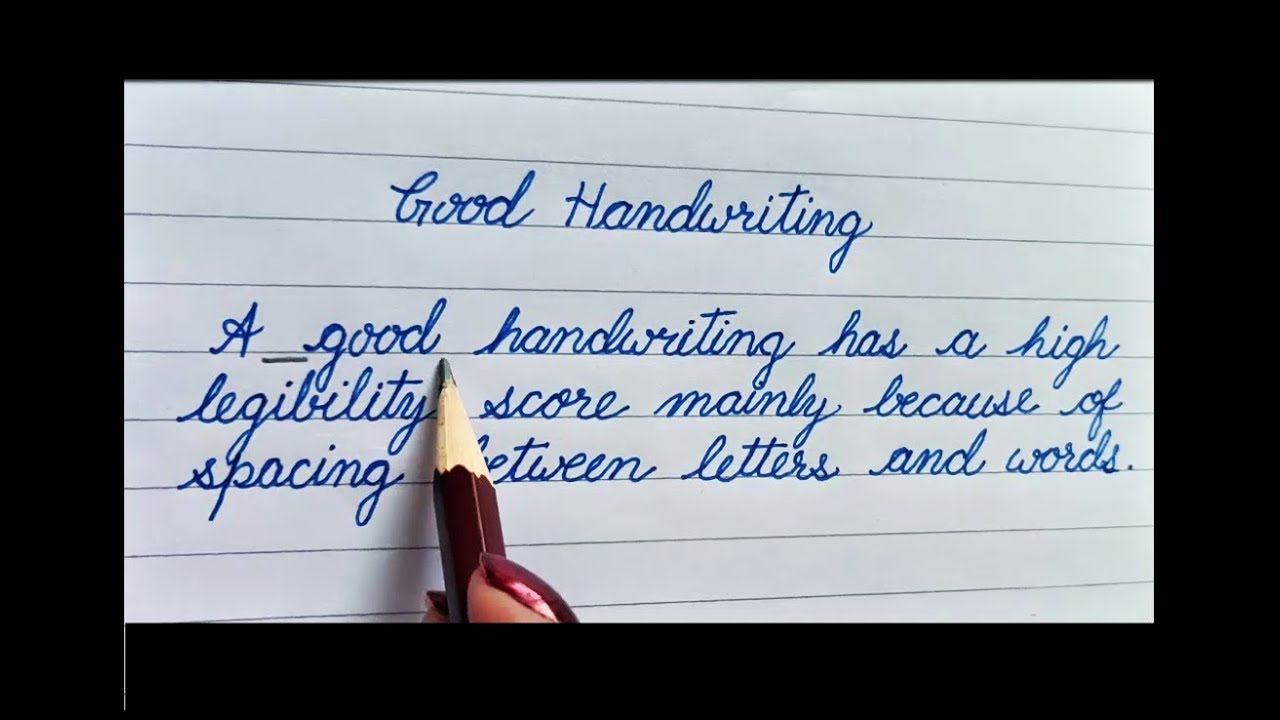 Good Handwriting
A good handwriting has a high
legibility score mainly because of
spacing between letters and words.